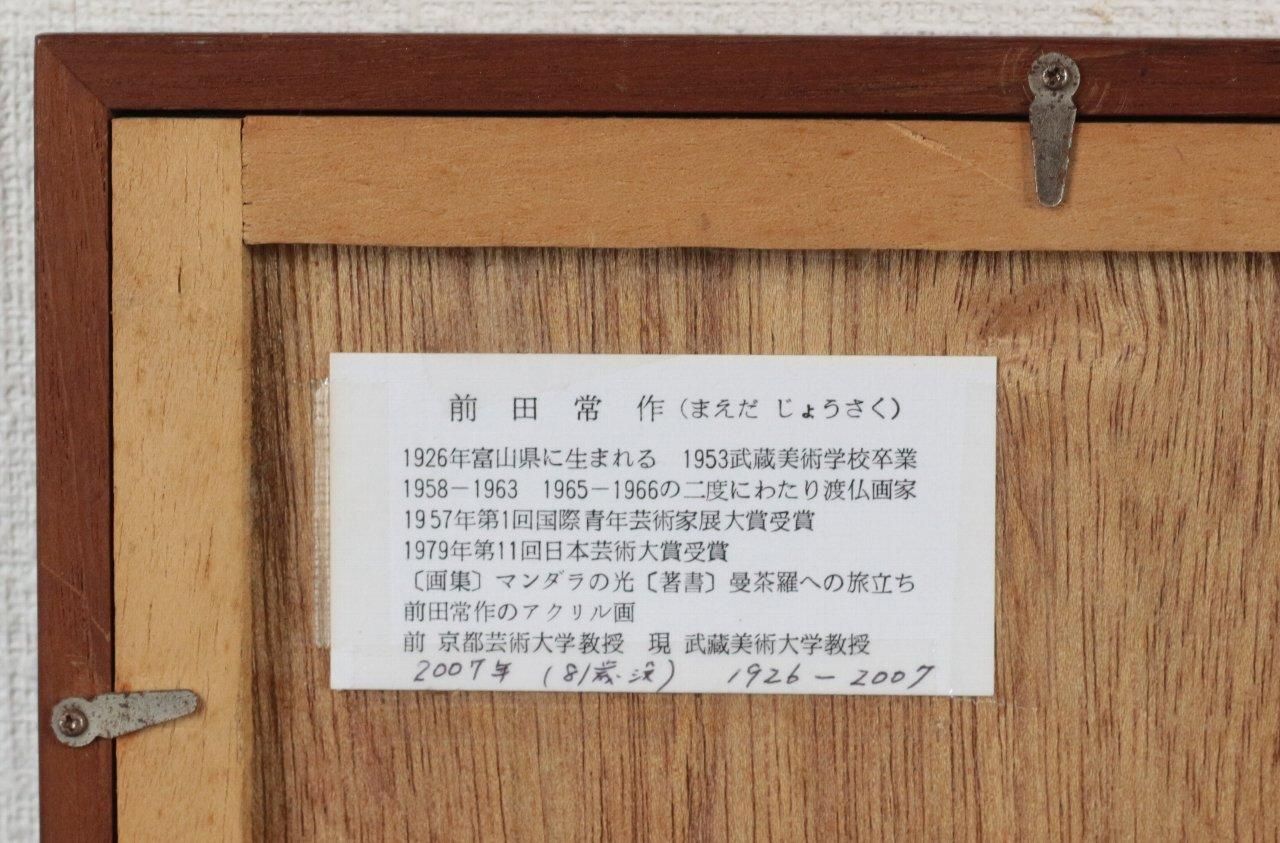 前田常作（まえだ じょうさく）
1926年富山県に生まれる　1953武蔵美術学校卒業
1958－1963　1965－1966の二度にわたり渡仏画家
1957年第1回国際青年芸術家展大賞受賞
1979年第11回日本芸術大賞受賞
〔画集〕マンダラの光〔著書〕曼茶羅への旅立ち
前田常作のアクリル画
前 京都芸術大学教授　現 武蔵美術大学教授
2007年（81歳没）　1926－2007